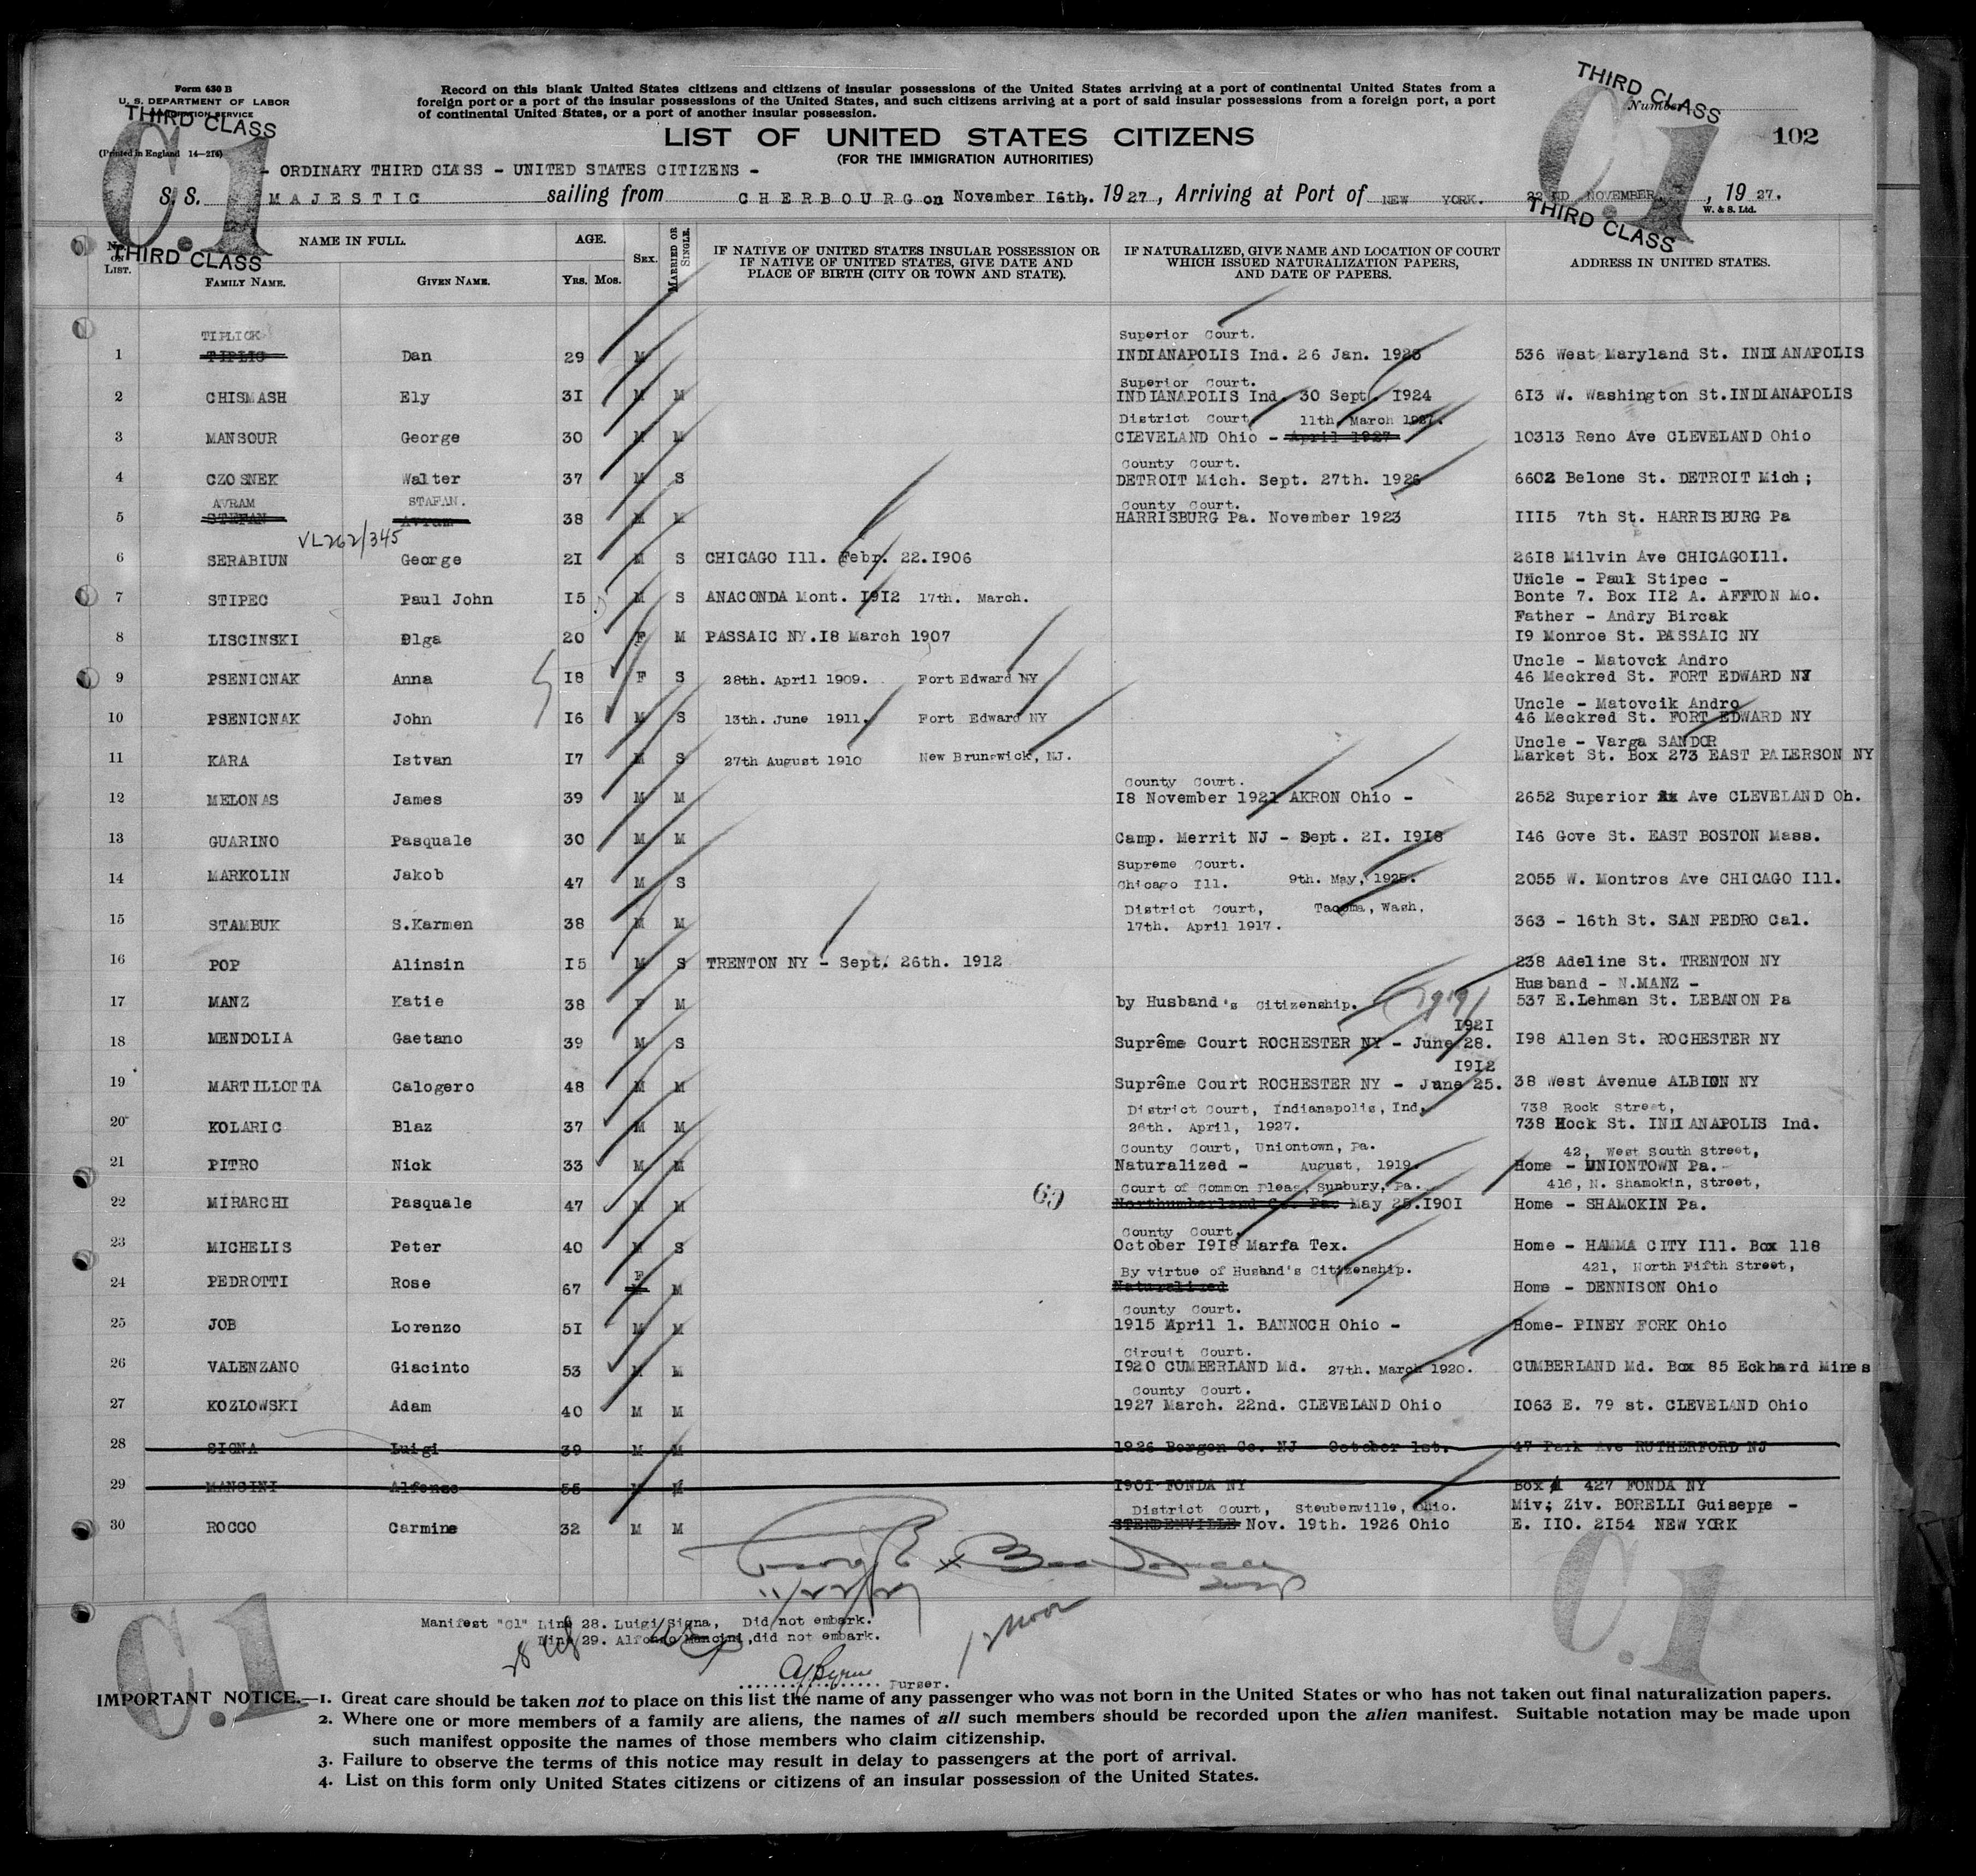 Form 630 B
U. S. DEPARTMENT OF LABOR
THIRD CLASS
(Printed in England 14—216)
C.1
THIRD CLASS
Record on this blank United States citizens and citizens of insular possessions of the United States arriving at a port of continental United States from a
foreign port or a port of the insular possessions of the United States, and such citizens arriving at a port of said insular possessions from a foreign port, a port
of continental United States, or a port of another insular possession.
LIST OF UNITED STATES CITIZENS
(FOR THE IMMIGRATION AUTHORITIES)
THIRD CLASS
Number
102
C.1
THIRD CLASS
- ORDINARY THIRD CLASS - UNITED STATES CITIZENS -
S. S. MAJESTIC sailing from CHERBOURG on November 16th, 1927, Arriving at Port of NEW YORK. 22 ND NOVEMBER, 1927.
W. & S. Ltd.
No. on List. NAME IN FULL. AGE. Sex. Married or Single. IF NATIVE OF UNITED STATES INSULAR POSSESSION OR IF NATIVE OF UNITED STATES, GIVE DATE AND PLACE OF BIRTH (CITY OR TOWN AND STATE). IF NATURALIZED, GIVE NAME AND LOCATION OF COURT WHICH ISSUED NATURALIZATION PAPERS, AND DATE OF PAPERS. ADDRESS IN UNITED STATES.
Family Name. Given Name. Yrs. Mos.
TIPLICK Superior Court.
1 TIPLIC Dan 29 M INDIANAPOLIS Ind. 26 Jan. 1925 536 West Maryland St. INDIANAPOLIS
Superior Court.
2 CHISMASH Ely 3I M M INDIANAPOLIS Ind. 30 Sept. I924 6I3 W. Washington St.INDIANAPOLIS
District Court 11th. March 1927.
3 MANSOUR George 30 M M CLEVELAND Ohio - April 1927 10313 Reno Ave CLEVELAND Ohio
County Court.
4 CZOSNEK Walter 37 M S DETROIT Mich. Sept. 27th. 1926 6602 Belone St. DETROIT Mich;
AVRAM STAFAN. County Court.
5 STEFAN Avram 38 M M HARRISBURG Pa. November 1923 III5 7th St. HARRISBURG Pa
VL262/345
6 SERABIUN George 2I M S CHICAGO Ill. Febr. 22.I906 26I8 Milvin Ave CHICAGOIll.
Uncle - Paul Stipec -
7 STIPEC Paul John I5 M S ANACONDA Mont. I9I2 17th. March. Bonte 7. Box II2 A. AFFTON Mo.
Father - Andry Bircak
8 LISCINSKI Olga 20 F M PASSAIC NY.I8 March 1907 I9 Monroe St. PASSAIC NY
Uncle - Matovck Andro
9 PSENICNAK Anna I8 F S 28th. April 1909. Fort Edward NY 46 Meckred St. FORT EDWARD NY
Uncle - Matovcik Andro
10 PSENICNAK John I6 M S 13th. June 1911. Fort Edward NY 46 Meckred St. FORT EDWARD NY
Uncle - Varga SANDOR
11 KARA Istvan I7 M S 27th August 1910 New Brunswick, NJ. Market St. Box 273 EAST PALERSON NY
County Court.
12 MELONAS James 39 M M I8 November 1921 AKRON Ohio - 2652 Superior Ave CLEVELAND Oh.
13 GUARINO Pasquale 30 M M Camp. Merrit NJ - Sept. 2I. I9I8 I46 Gove St. EAST BOSTON Mass.
Supreme Court.
14 MARKOLIN Jakob 47 M S Chicago Ill. 9th. May, 1925. 2055 W. Montros Ave CHICAGO Ill.
District Court, Tacoma, Wash.
15 STAMBUK S.Karmen 38 M M 17th. April 1917. 363 - 16th St. SAN PEDRO Cal.
16 POP Alinsin I5 M S TRENTON NY - Sept. 26th. 1912 238 Adeline St. TRENTON NY
Husband - N.MANZ -
17 MANZ Katie 38 F M by Husband's Citizenship. (1919) 537 E.Lehman St. LEBANON Pa
I92I
18 MENDOLIA Gaetano 39 M S Suprême Court ROCHESTER NY - June 28. I98 Allen St. ROCHESTER NY
I9I2
19 MARTILLOTTA Calogero 48 M M Suprême Court ROCHESTER NY - June 25. 38 West Avenue ALBION NY
District Court, Indianapolis, Ind. 738 Rock Street,
20 KOLARIC Blaz 37 M M 26th. April, 1927. 738 Hock St. INDIANAPOLIS Ind.
County Court, Uniontown, Pa. 42, West South Street,
21 PITRO Nick 33 M M Naturalized - August, 1919. Home - UNIONTOWN Pa.
Court of Common Pleas, Sunbury, Pa. 416, N. Shamokin, Street,
22 MIRARCHI Pasquale 47 M M Northumberland Co. Pa. May 25.I90I Home - SHAMOKIN Pa.
County Court.
23 MICHELIS Peter 40 M S October I9I8 Marfa Tex. Home - HAMMA CITY Ill. Box 118
F By virtue of Husband's Citizenship. 421, North Fifth Street,
24 PEDROTTI Rose 67 M M Naturalized Home - DENNISON Ohio
County Court.
25 JOB Lorenzo 5I M M 1915 April 1. BANNOCH Ohio - Home- PINEY FORK Ohio
Circuit Court.
26 VALENZANO Giacinto 53 M M I920 CUMBERLAND Md. 27th. March 1920. CUMBERLAND Md. Box 85 Eckhard Mines
County Court.
27 KOZLOWSKI Adam 40 M M 1927 March. 22nd. CLEVELAND Ohio I063 E. 79 st. CLEVELAND Ohio
28 SIGNA Luigi 39 M M 1926 Bergen Co. NJ - October 1st. 47 Park Ave RUTHERFORD NJ
29 MANCINI Alfonso 55 M M I90I FONDA NY Box 427 FONDA NY
District Court, Steubenville, Ohio. Miv; Ziv. BORELLI Guiseppe -
30 ROCCO Carmine 32 M M STENDENVILLE Nov. 19th. 1926 Ohio E. IIO. 2I54 NEW YORK
11/22/27
Manifest "C1" Line 28. Luigi Signa, Did not embark.
Line 29. Alfonso Mancini, did not embark.
28
Purser.
C.1
C.1
IMPORTANT NOTICE.—1. Great care should be taken not to place on this list the name of any passenger who was not born in the United States or who has not taken out final naturalization papers.
2. Where one or more members of a family are aliens, the names of all such members should be recorded upon the alien manifest. Suitable notation may be made upon
such manifest opposite the names of those members who claim citizenship.
3. Failure to observe the terms of this notice may result in delay to passengers at the port of arrival.
4. List on this form only United States citizens or citizens of an insular possession of the United States.